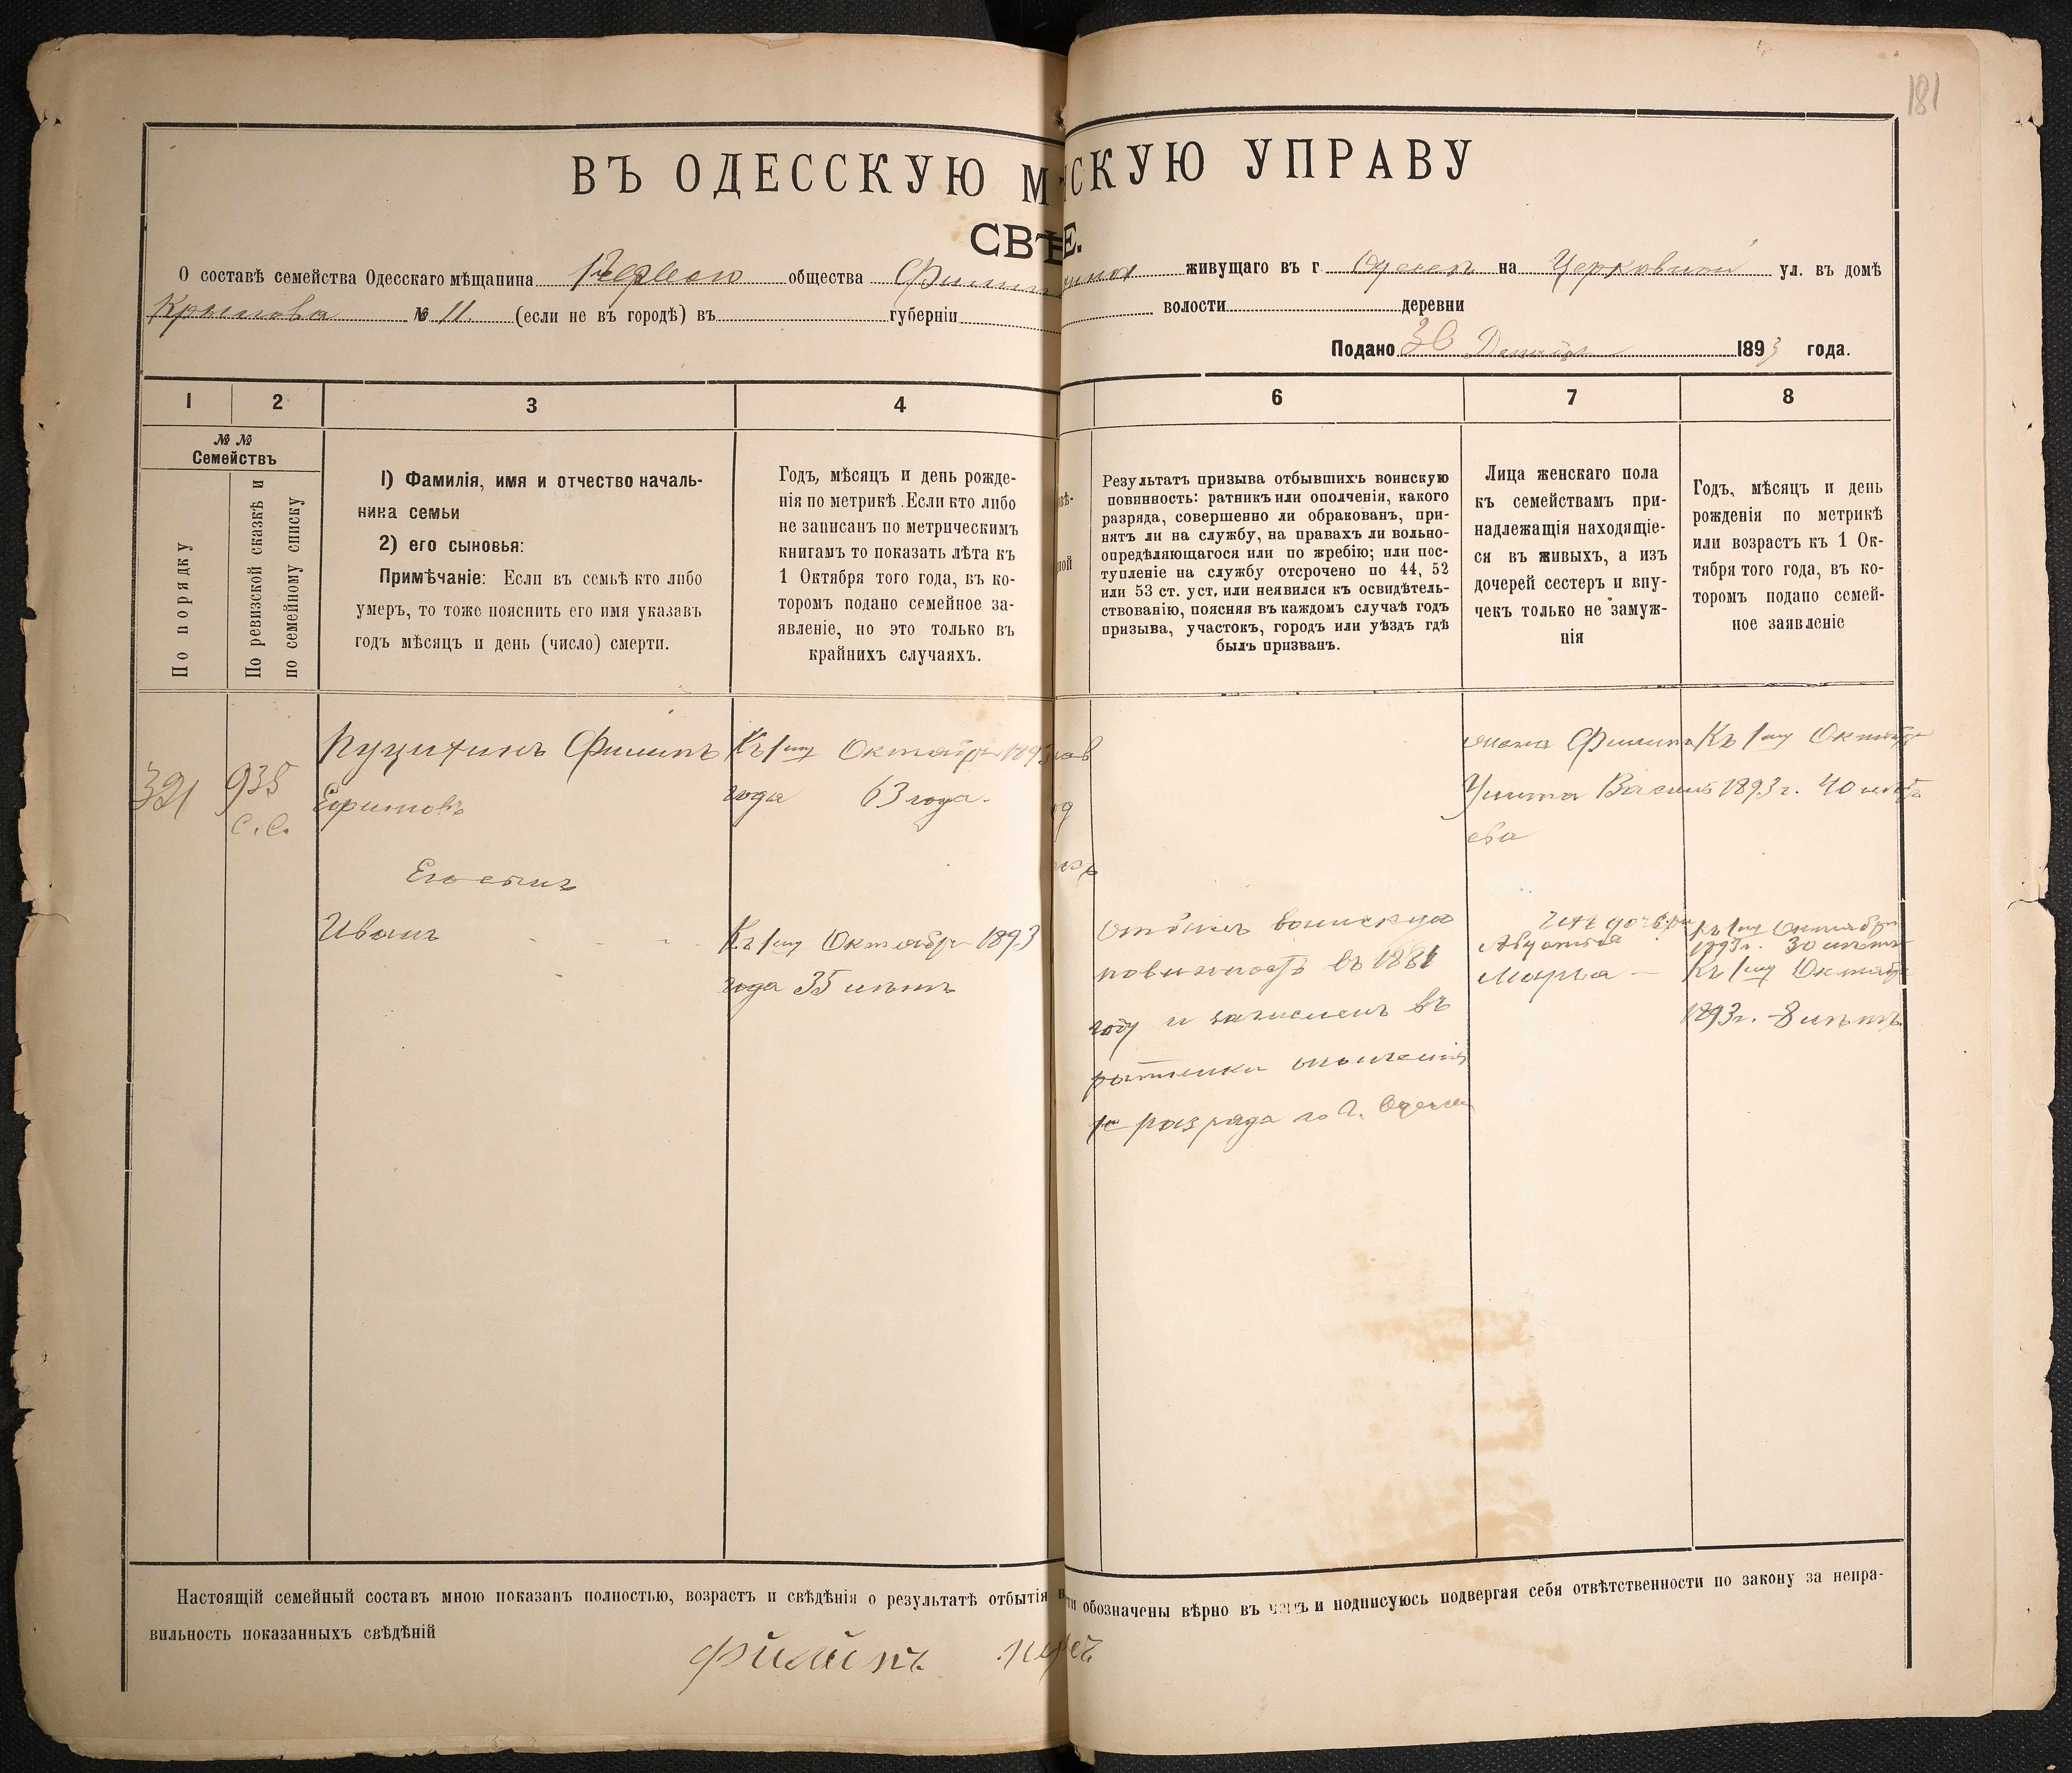 181
ВЪ ОДЕССКУЮ М СКУЮ УПРАВУ
СВѢ Е.
О составѣ семейства Одесскаго мѣщанина Первого общества живущаго въ г Одессѣ на Церковной ул. въ домѣ
№ 11. (если не въ городѣ) въ губерніи волости деревни
Подано 30 1893 года.
1 2 3 4 6 7 8
№ №
Семействъ
По порядку
По ревизской сказкѣ и
по семейному списку
1) Фамилія, имя и отчество началь-
ника семьи
2) его сыновья:
Примѣчаніе: Если въ семьѣ кто либо
умеръ, то тоже пояснить его имя указавъ
годъ мѣсяцъ и день (число) смерти.
Годъ, мѣсяцъ и день рожде-
нія по метрикѣ. Если кто либо
не записанъ по метрическимъ
книгамъ то показать лѣта къ
1 Октября того года, въ ко-
торомъ подано семейное за-
явленіе, но это только въ
крайнихъ случаяхъ.
Результатъ призыва отбывшихъ воинскую
повинность: ратникъ или ополченія, какого
разряда, совершенно ли обракованъ, при-
нятъ ли на службу, на правахъ ли вольно-
опредѣляющагося или по жребію; или пос-
тупленіе на службу отсрочено по 44, 52
или 53 ст. уст, или неявился къ освидѣтель-
ствованію, поясняя въ каждомъ случаѣ годъ
призыва, участокъ, городъ или уѣздъ гдѣ
былъ призванъ.
Лица женскаго пола
къ семействамъ при-
надлежащія находящіе-
ся въ живыхъ, а изъ
дочерей сестеръ и вну-
чекъ только не замуж-
нія
Годъ, мѣсяцъ и день
рожденія по метрикѣ
или возрастъ къ 1 Ок-
тября того года, въ ко-
торомъ подано семей-
ное заявленіе
321
935
с.с.
Филипъ
Ефимовъ
Его сынъ
Иванъ
Къ 1му Октября 1893
года 63 года.
Къ 1му Октября 1893
года 35 лѣтъ
отбылъ воинскую
повинность въ 1881
году и зачисленъ въ
ратники ополченія
разряда по г. Одессѣ
жена Филипа
Улита Василь
ева
ихъ дочери
Авдотья
Марья
Къ 1му Октября
1893 г. 40 лѣтъ
Къ 1му Октября
1893 г. 30 лѣтъ
Къ 1му Октября
1893 г. 8 лѣтъ
Настоящій семейный составъ мною показанъ полностью, возрастъ и свѣдѣнія о результатѣ отбытія в ти обозначены вѣрно въ чемъ и подписуюсь подвергая себя отвѣтственности по закону за непра-
вильность показанныхъ свѣдѣній
Филипъ